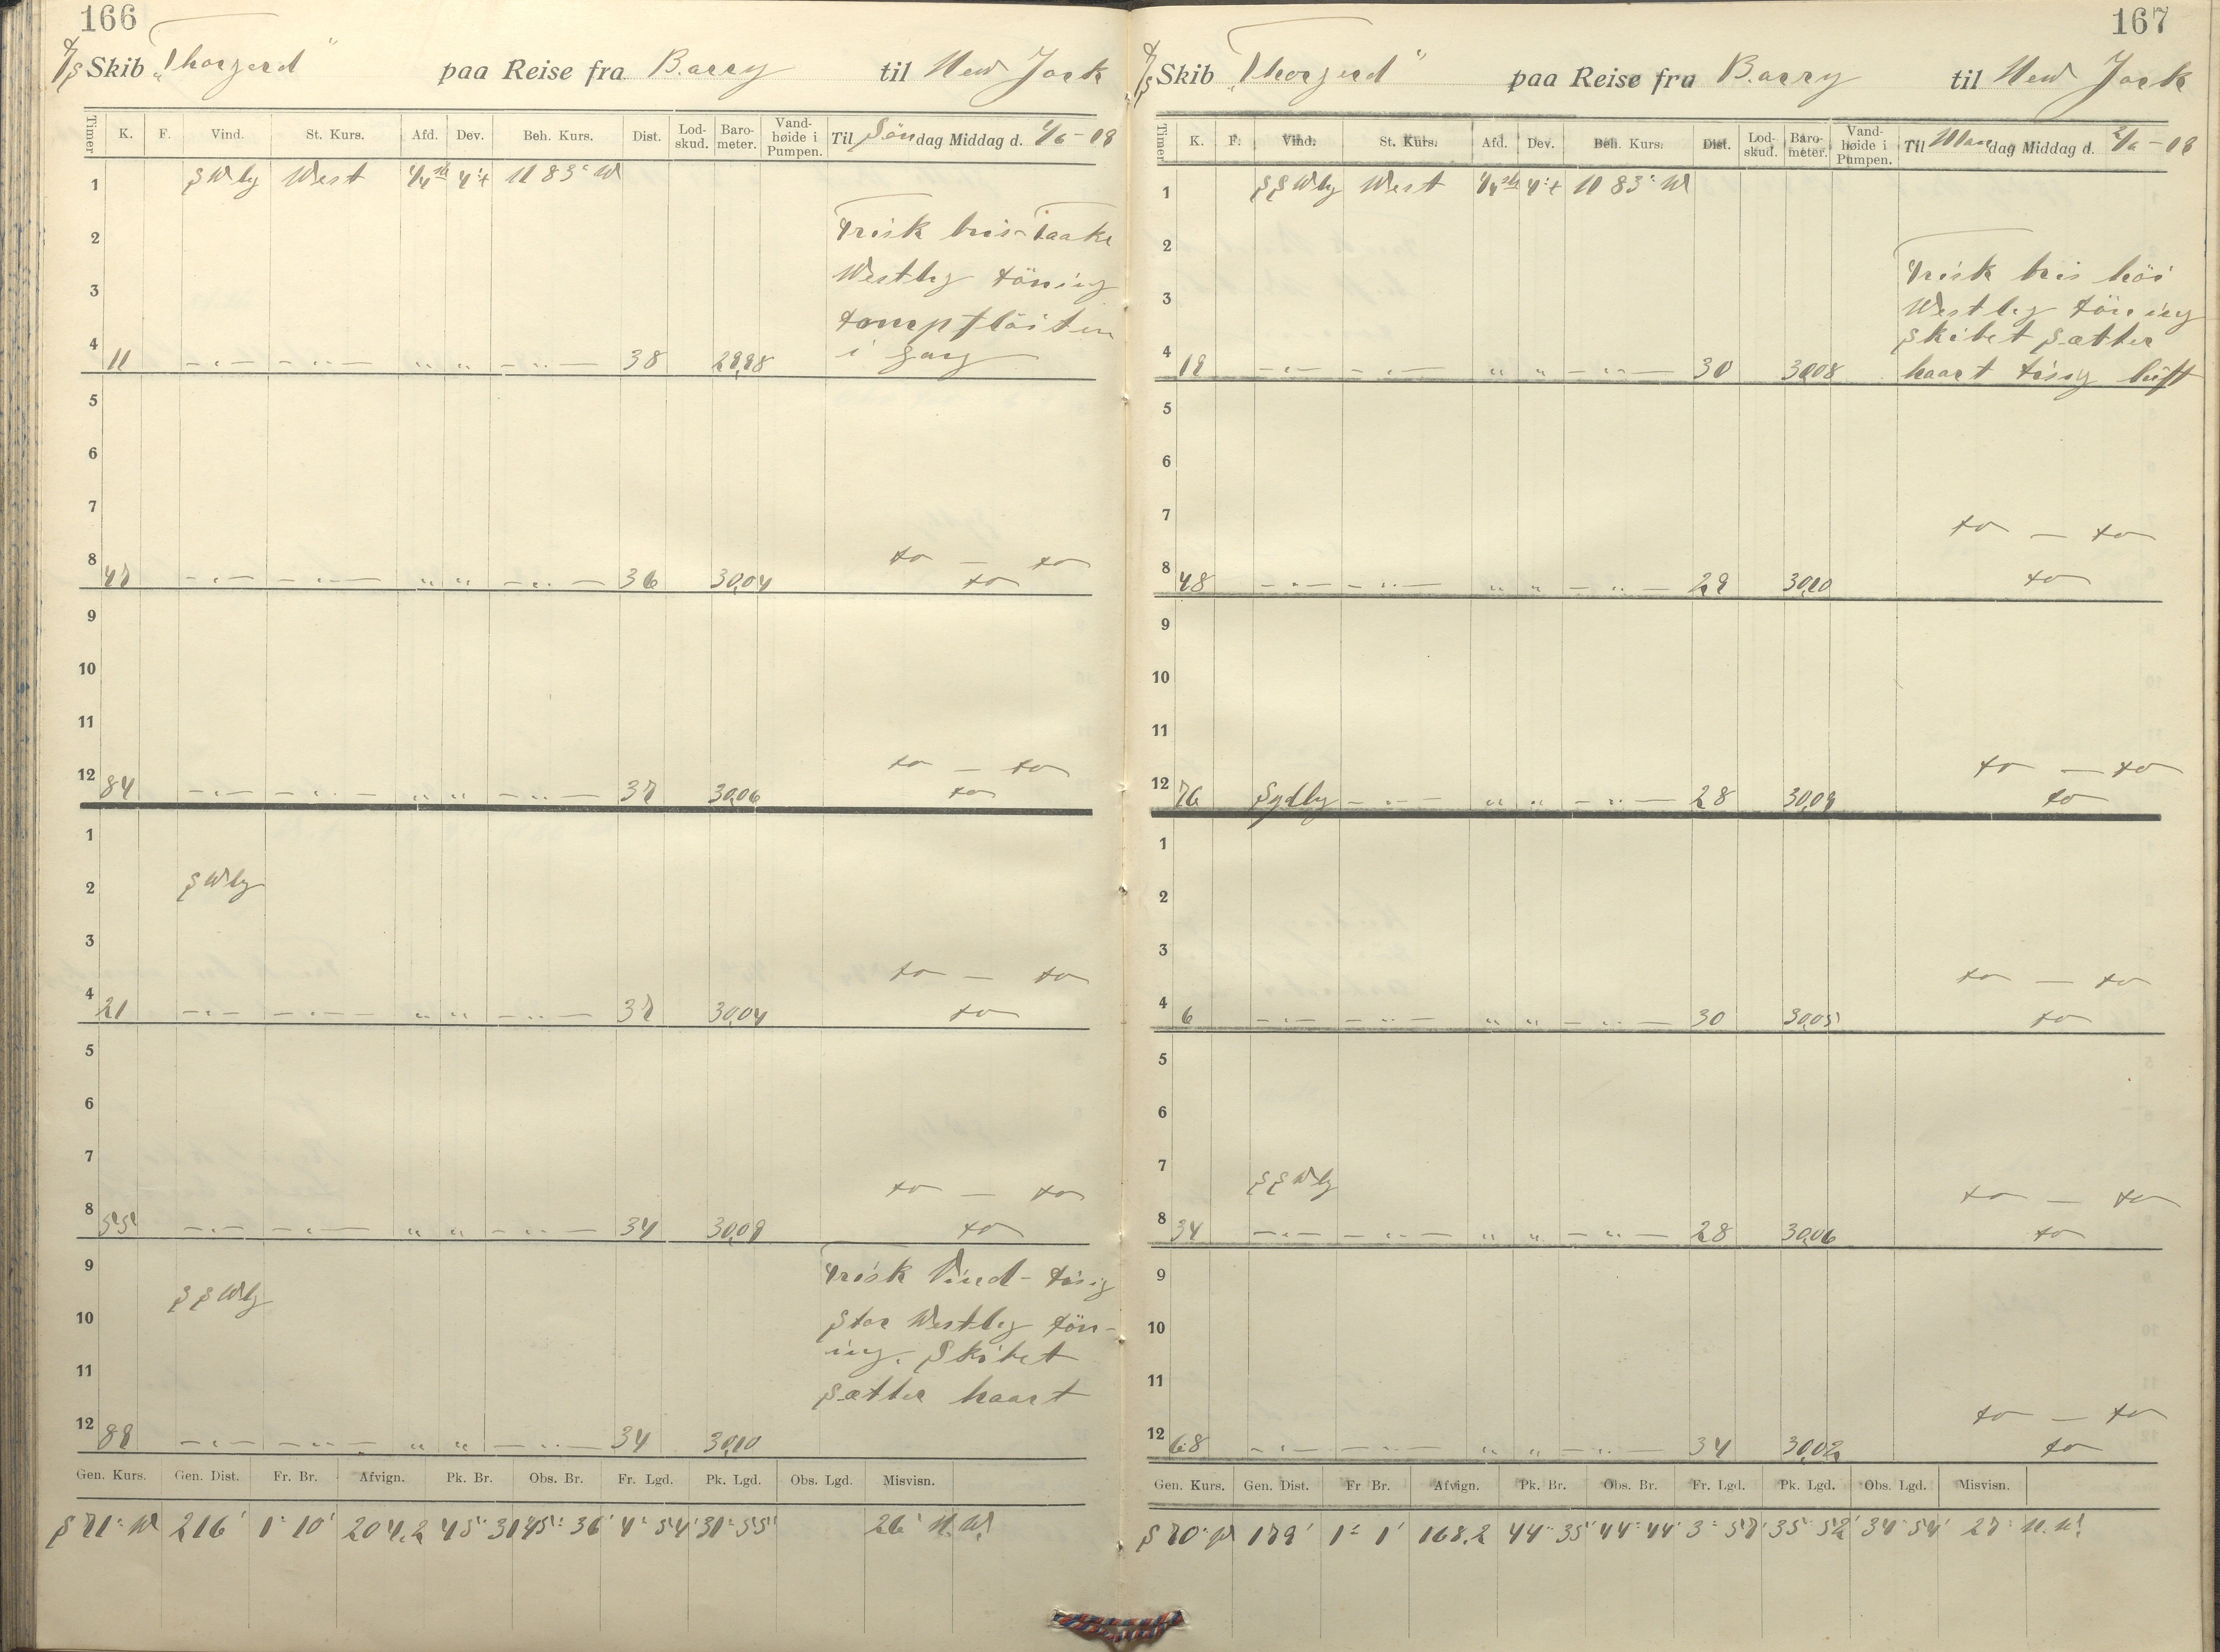 166
D/S Skib „Thorgerd" paa Reise fra Barry til New Jork
Timer K. F. Vind. St. Kurs. Afd. Dev. Beh. Kurs. Dist. Lod-skud. Baro-meter. Vand-høide i Pumpen. Til Søndag Middag d. 1/6-08
1 SWly West N 83° W
2 Frisk bris-Taake
Westlig döning
3
Dampfløiten
4 11 38 29,98 i gang
5
6
7
8 47 36 30,04 do — do
do
9
10
11
12 84 37 30,06 do — do
do
1
2 SWly
3
4 21 37 30,04 do — do
do
5
6
7
8 55 34 30,09 do — do
do
9 Frisk Vind - disig
10 SSWly Stor Westlig dön-
ing. Skibet
11 sætter haart
12 89 34 30,10
Gen. Kurs. Gen. Dist. Fr. Br. Afvign. Pk. Br. Obs. Br. Fr. Lgd. Pk. Lgd. Obs. Lgd. Misvisn.
S 71° W 216' 1° 10' 204,2 45° 31' 45° 36' 4° 54' 31° 55' 26° N.W.
167
D/S Skib „Thorgerd" paa Reise fra Barry til New Jork
Timer K. F. Vind. St. Kurs. Afd. Dev. Beh. Kurs. Dist. Lod-skud. Baro-meter. Vand-høide i Pumpen. Til Mandag Middag d. 2/6-08
1 SSWly West N 83° W
2
3 Frisk bris høi
Westlig döning
Skibet sætter
4 19 30 30,08 haart disig luft
5
6
7 do — do
8 48 29 30,10 do
9
10
11
12 76 Sydly 28 30,09 do — do
do
1
2
3
4 6 30 30,05 do — do
do
5
6
7 SSWly
8 34 28 30,06 do — do
do
9
10
11
12 68 34 30,02 do — do
do
Gen. Kurs. Gen. Dist. Fr Br. Afvign. Pk. Br. Obs. Br. Fr. Lgd. Pk. Lgd. Obs. Lgd. Misvisn.
S 70° W 179' 1° 1' 168,2 44° 35' 44° 44' 3° 57' 35° 52' 34° 54' 27°